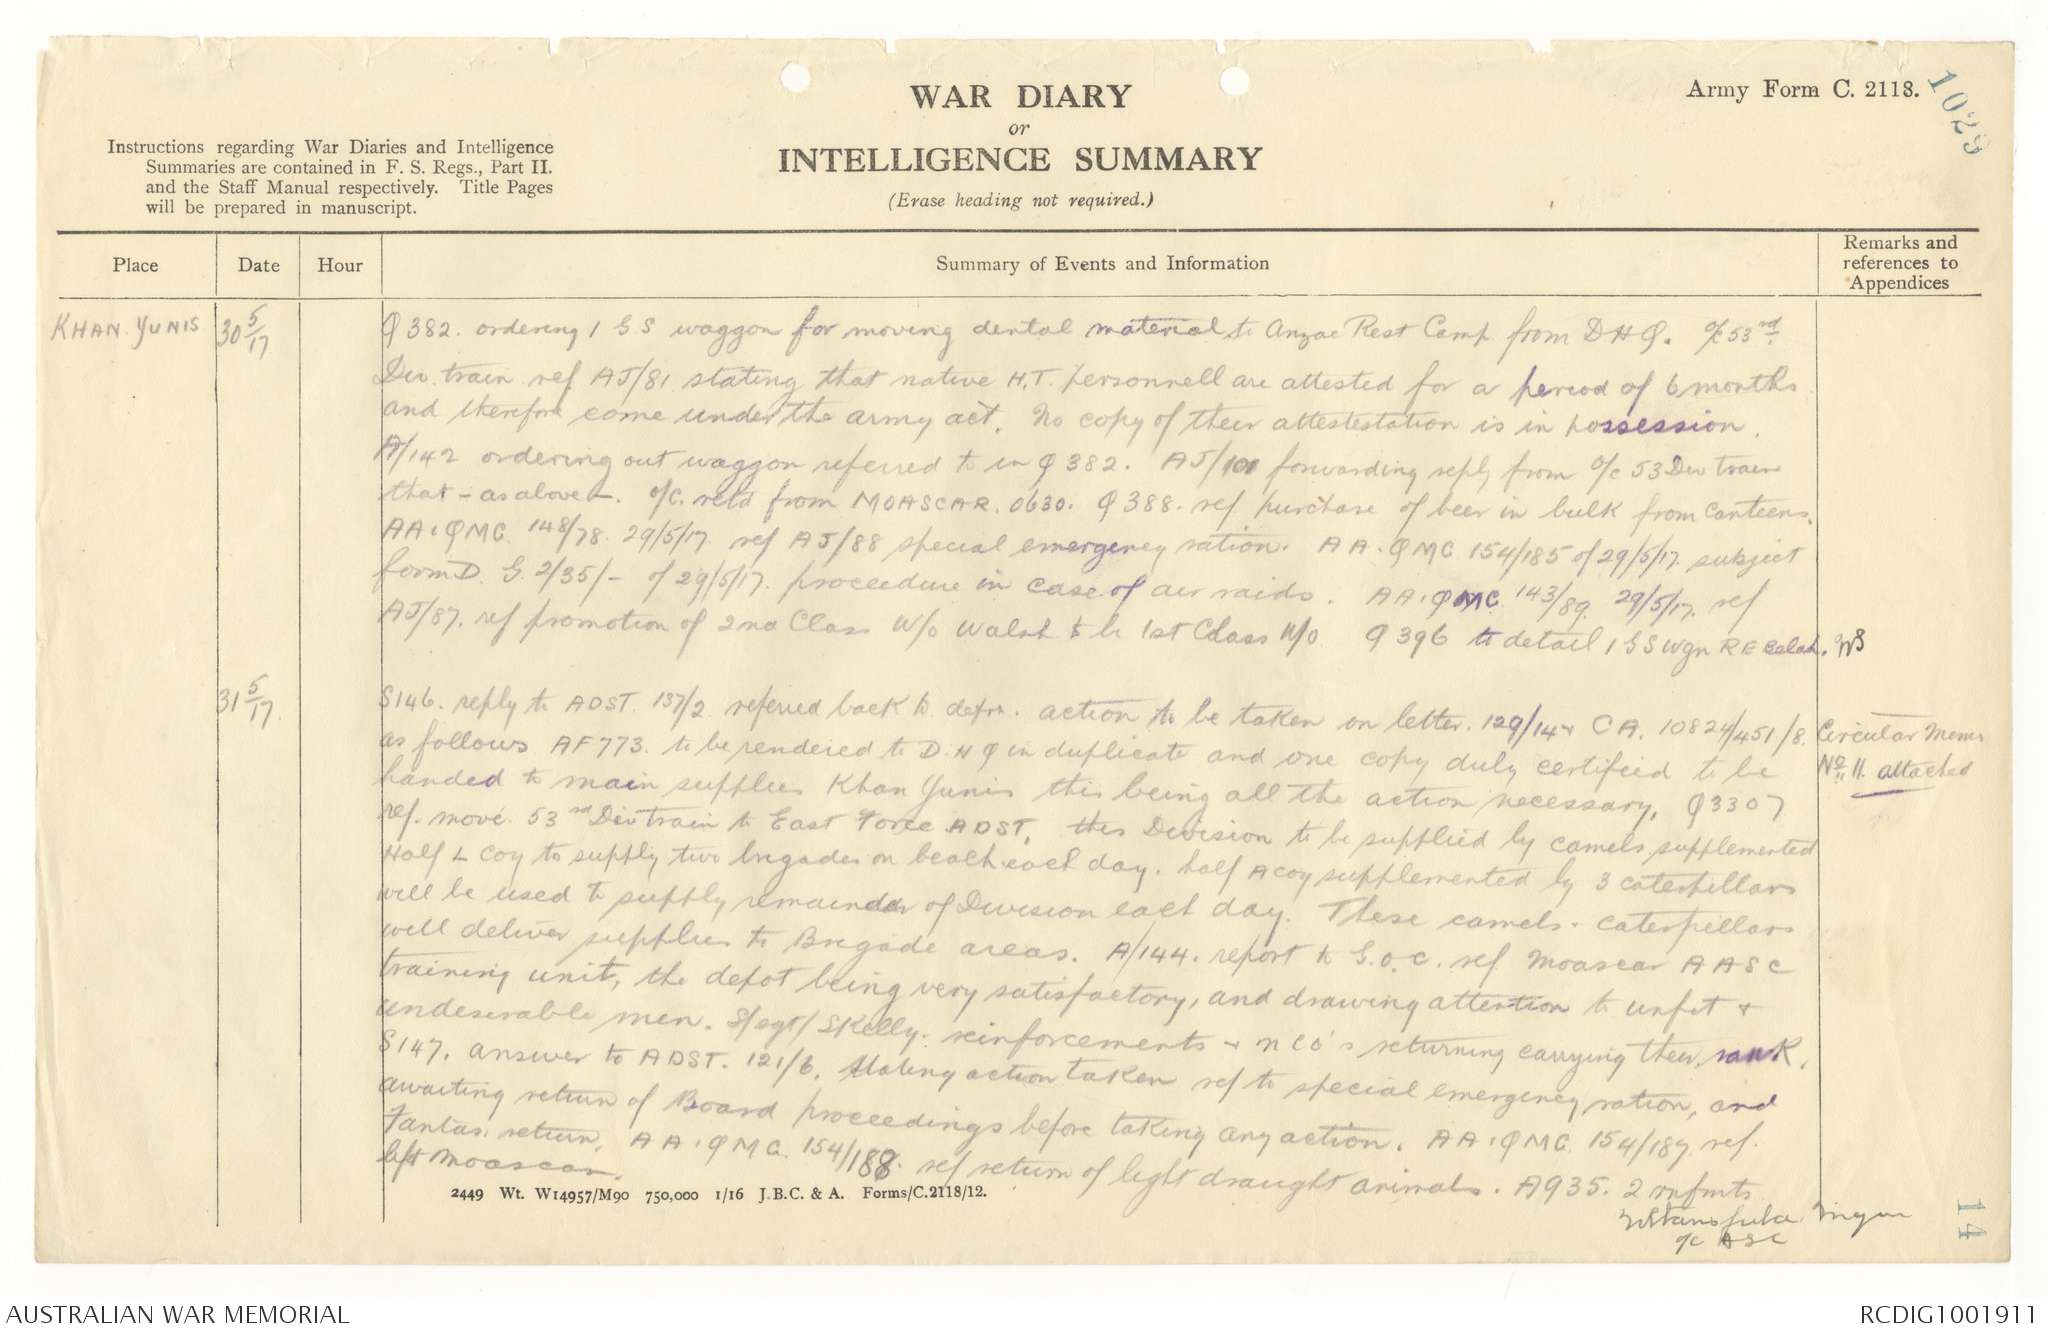 WAR DIARY
or
INTELLIGENCE SUMMARY
(Erase heading not required.)
Army Form C. 2118.
1029
Instructions regarding War Diaries and Intelligence
Summaries are contained in F. S. Regs., Part II.
and the Staff Manual respectively. Title Pages
will be prepared in manuscript.
Place
Date
Hour
Summary of Events and Information
Remarks and
references to
Appendices
KHAN YUNIS
30 5/17
Q 382. ordering 1 G S waggon for moving dental material to Anzac Rest Camp from D H Q. o/c 53rd
Div. train ref AJ/81. stating that native H.T. personnell are attested for a period of 6 months
and therefore come under the army act. No copy of their attestestation is in possession.
A/142 ordering out waggon referred to in Q 382. AJ/101 forwarding reply from o/c 53 Div train
that - as above -. o/c. retd from MOASCAR. 0630. Q 388. ref purchase of beer in bulk from canteens.
AA.QMG. 148/78. 29/5/17. ref AJ/88 special emergency ration. AA.QMG 154/185 of 29/5/17. subject
form D. G. 2/35/- of 29/5/17. proceedure in case of air raids. AA.QMG. 143/89. 29/5/17. ref
AJ/87. ref promotion of 2nd Class W/o Walsh to be 1st Class W/o. Q 396 to detail 1 G S wgn R E Belah. WS
31 5/17.
S146. reply to ADST. 137/2 referred back to action to be taken on letter. 129/14 + CA. 10824/451/8.
as follows AF 773. to be rendered to D.H Q in duplicate and one copy duly certified to be
handed to main supplies Khan Yunis this being all the action necessary. Q3307
ref. move 53rd Div train to East Force ADST. this Division to be supplied by camels, supplemented
Half L Coy to supply two brigades on beach each day. half A coy supplemented by 3 caterpillars
will be used to supply remainder of Division each day. These camels - caterpillars
will deliver supplies to Brigade areas. A/144. report to G.O.C. ref Moascar AASC
training unit, the depot being very satisfactory, and drawing attention to unfit +
undeserable men. S/sgt/ Skelly. reinforcements + NCO's returning carrying their rank.
S147. answer to ADST. 121/6. stating action taken ref to special emergency ration, and
awaiting return of Board proceedings before taking any action. AA.QMG. 154/187. ref.
Fantas. return. AA.QMG. 154/188. ref return of light draught animals. A935. 2 rnfmts
left Moascar.
Circular Memo
No 11. attached
2449 Wt. W14957/M90 750,000 1/16 J.B.C. & A. Forms/C.2118/12.
WStansfield Major
o/c ASC
14
AUSTRALIAN WAR MEMORIAL
RCDIG1001911